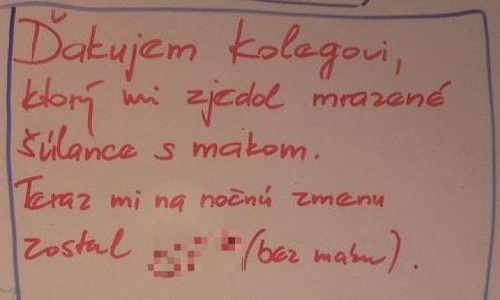 Ďakujem kolegovi,
ktorý mi zjedol mrazené
šúlance s makom.
Teraz mi na nočnú zmenu
zostal (bez maku).